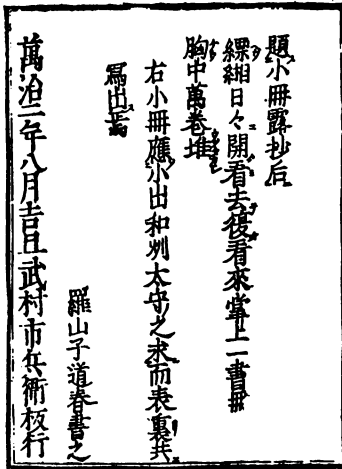 題小冊露抄后
縹緗日々開看去復看來掌上一書冊
胸中萬卷堆
右小冊應小出和州太守之求而表裏共
寫出焉
羅山子道春書之
萬治二年八月吉旦武村市兵衛板行